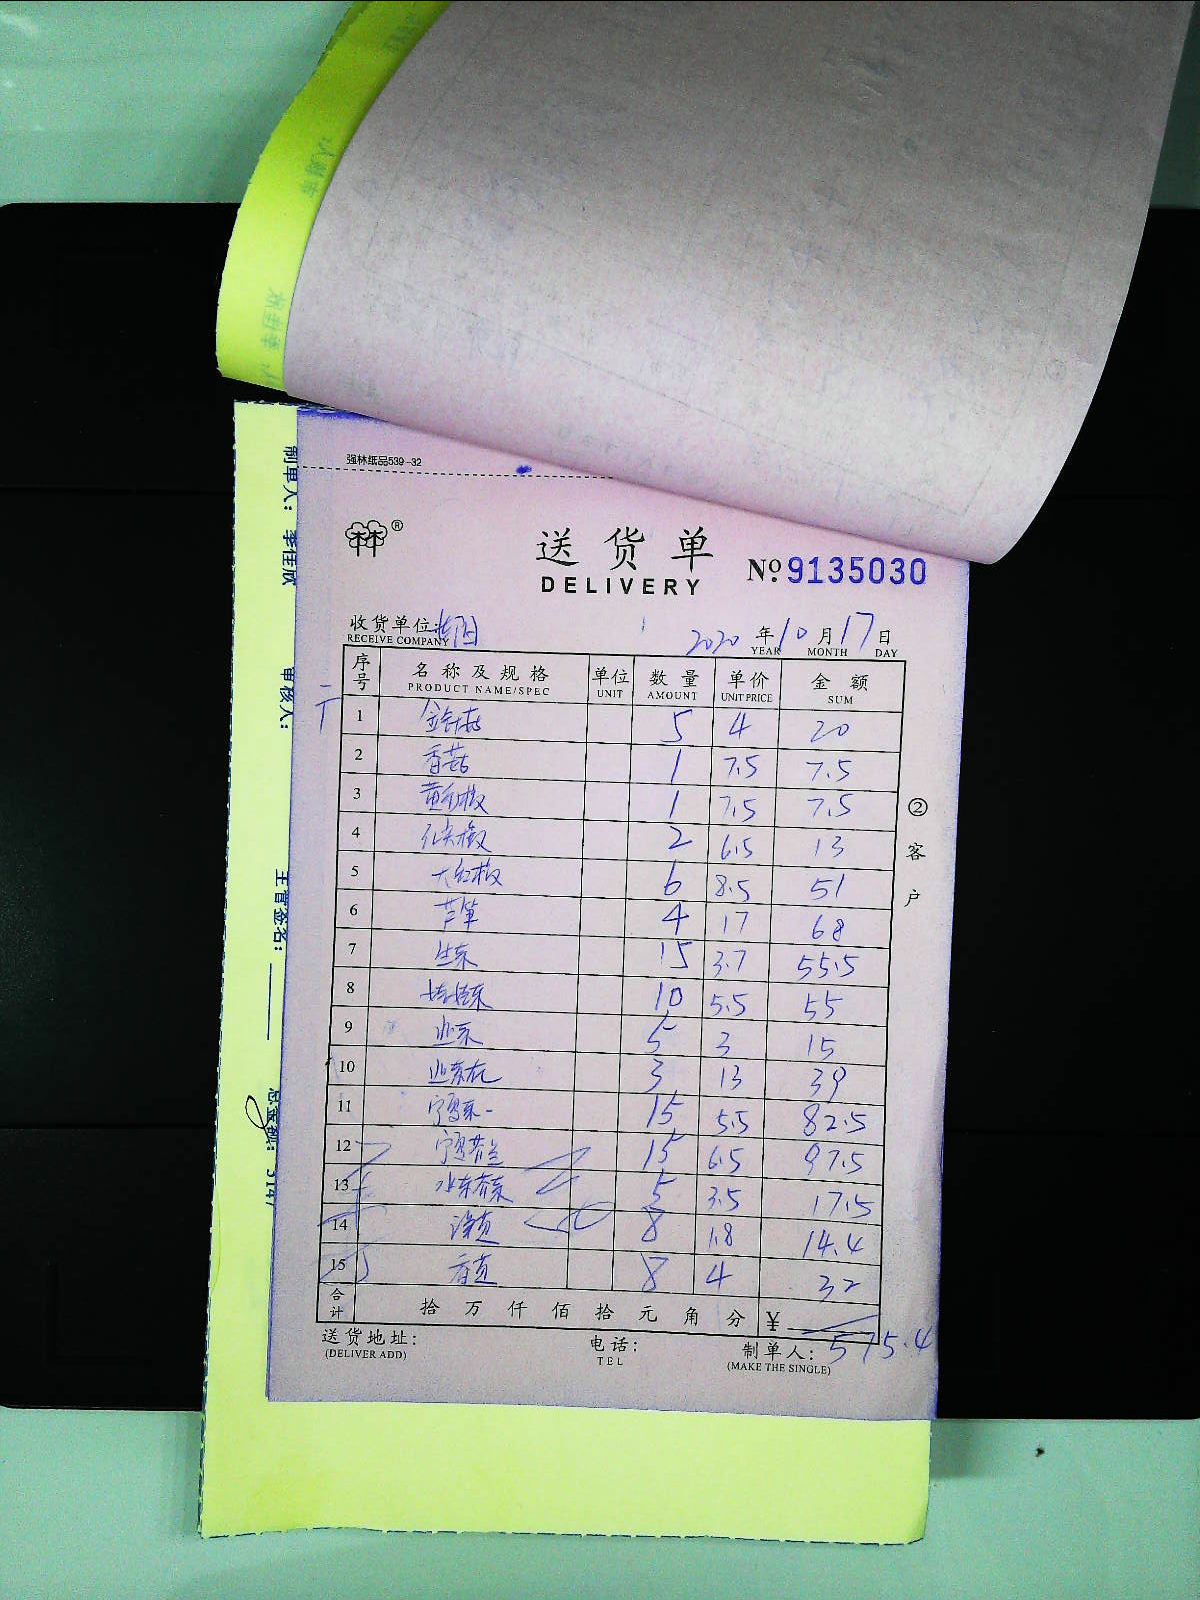 强林纸品539-32
林®
送货单
DELIVERY
No.9135030
收货单位:
RECEIVE COMPANY
2020 年 10 月 17 日
YEAR MONTH DAY
序号 名称及规格 单位 数量 单价 金额
PRODUCT NAME/SPEC UNIT AMOUNT UNIT PRICE SUM
1 金针菇 5 4 20
2 香菇 1 7.5 7.5
3 黄红椒 1 7.5 7.5
4 尖椒 2 6.5 13
5 大红椒 6 8.5 51
6 芦笋 4 17 68
7 生菜 15 3.7 55.5
8 10 5.5 55
9 5 3 15
10 3 13 39
11 15 5.5 82.5
12 15 6.5 97.5
13 5 3.5 17.5
14 8 1.8 14.4
15 8 4 32
合计 拾 万 仟 佰 拾 元 角 分 ¥ 575.4
送货地址: 电话: 制单人:
(DELIVER ADD) TEL (MAKE THE SINGLE)
②客户
制单人: 李佳欣
审核人:
主管签名:
总金额: 3147